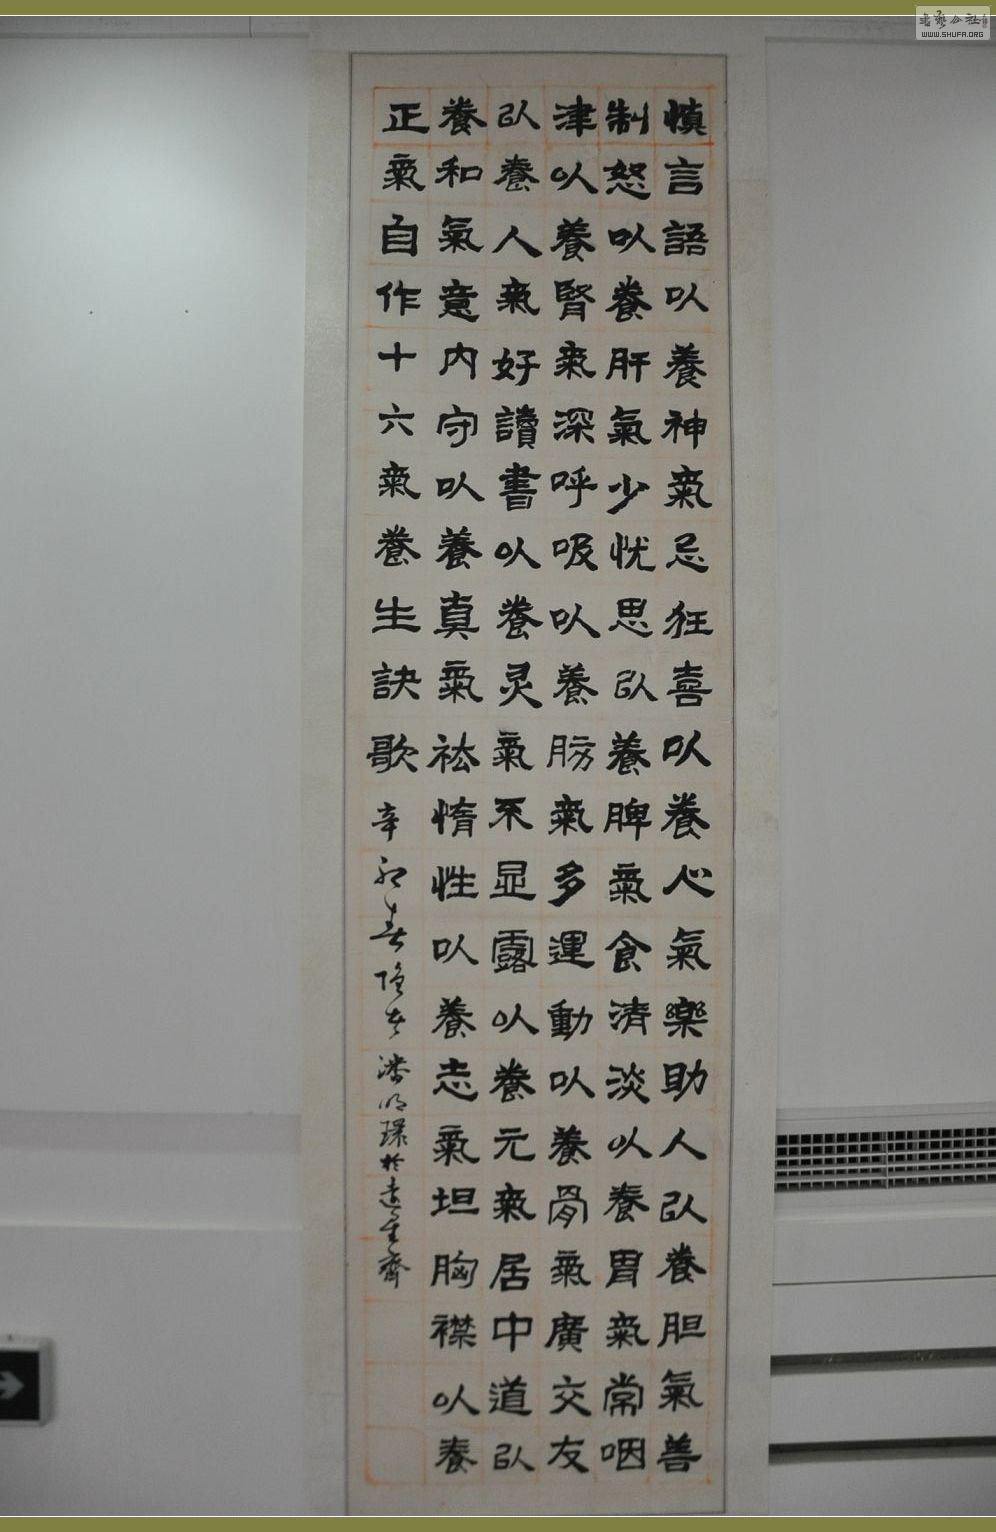 慎言語以養神氣忌狂喜以養心氣樂助人以養胆氣善
制怒以養肝氣少忧思以養脾氣食清淡以養胃氣常咽
津以養腎氣深呼吸以養肺氣多運動以養骨氣廣交友
以養人氣好讀書以養灵氣不显露以養元氣居中道以
養和氣意内守以養真氣祛惰性以養志氣坦胸襟以養
正氣自作十六氣養生訣歌
辛卯春陸十 潘明環於遠塵齋
书艺公社
www.SHUFA.ORG